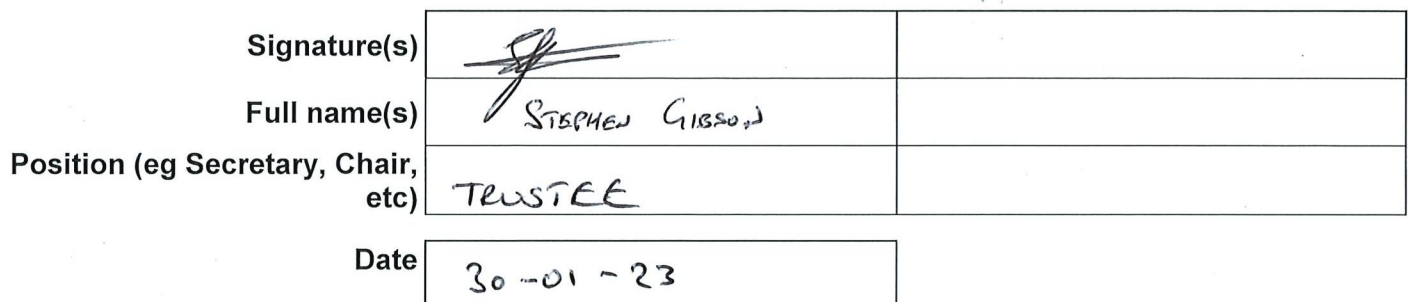 Signature(s)
Full name(s) STEPHEN GIBSON
Position (eg Secretary, Chair,
etc) TRUSTEE
Date 30-01-23